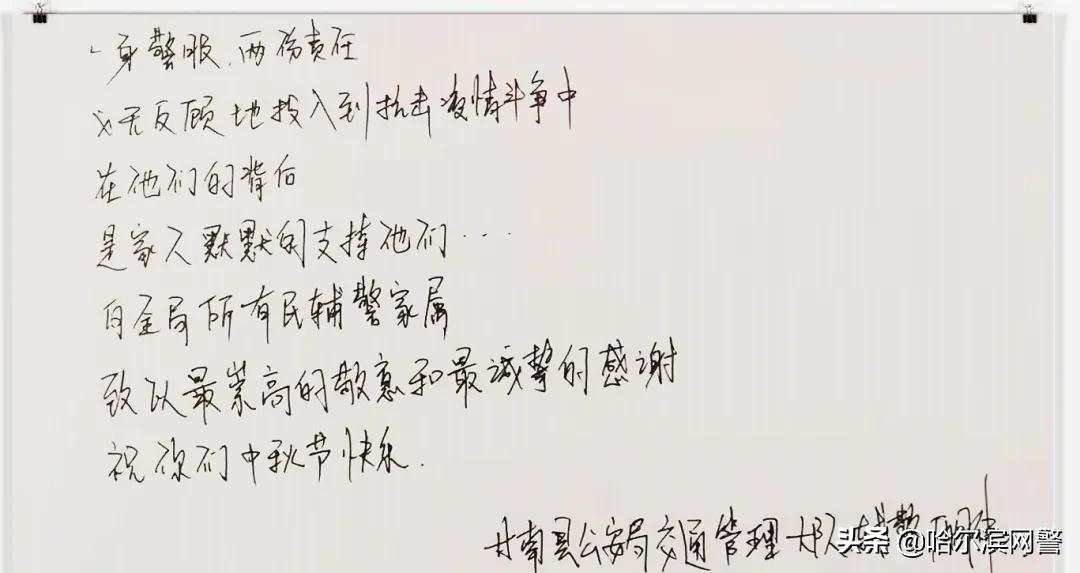 一身警服,两份责任
义无反顾地投入到抗击疫情斗争中
在他们的背后
是家人默默的支撑他们...
向全局所有民辅警家属
致以最崇高的敬意和最诚挚的感谢
祝你们中秋节快乐.
甘南县公安局交通管理大队辅警
头条 @哈尔滨网警